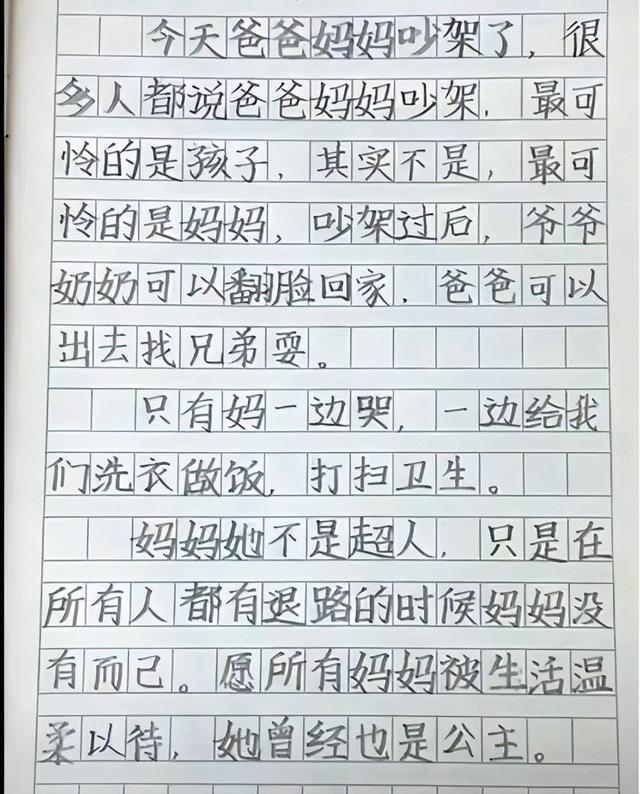 今天爸爸妈妈吵架了，很
多人都说爸爸妈妈吵架，最可
怜的是孩子，其实不是，最可
怜的是妈妈，吵架过后，爷爷
奶奶可以翻脸回家，爸爸可以
出去找兄弟耍。
只有妈一边哭，一边给我
们洗衣做饭，打扫卫生。
妈妈她不是超人，只是在
所有人都有退路的时候妈妈没
有而已。愿所有妈妈被生活温
柔以待，她曾经也是公主。